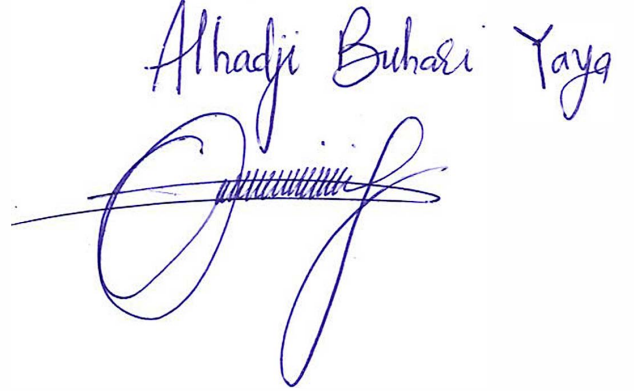 Alhadji Buhari Yaya